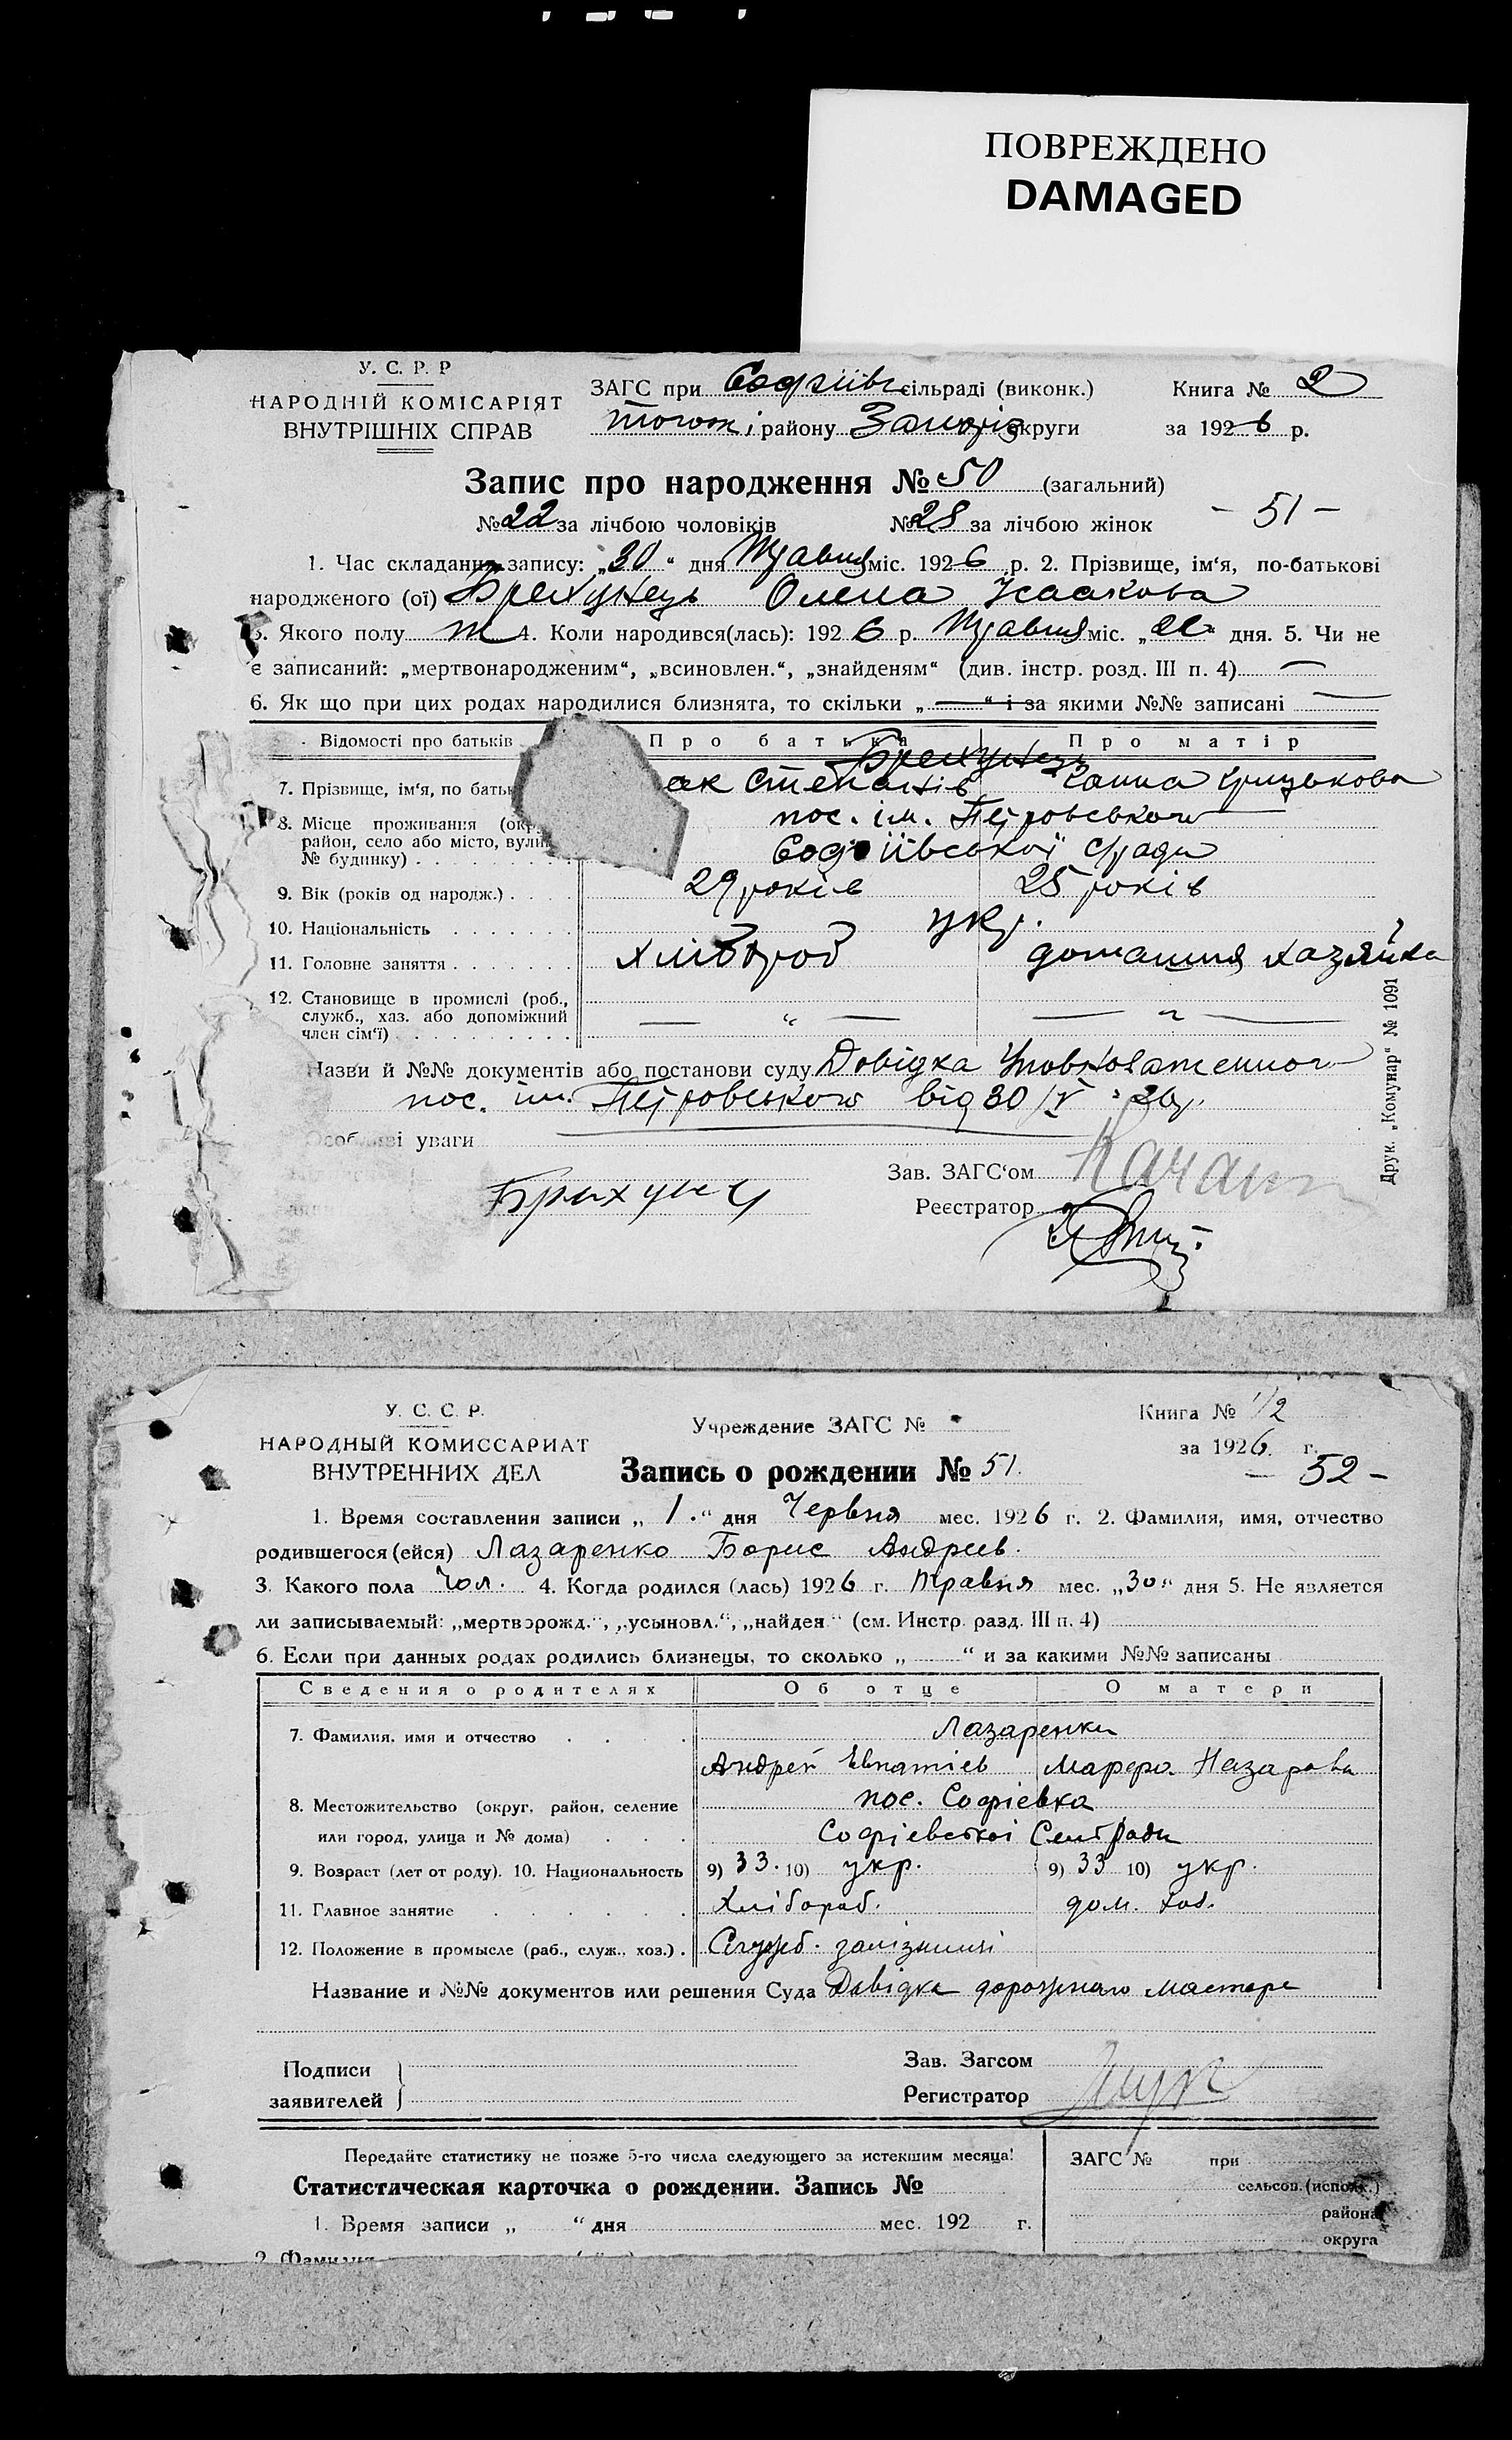 ПОВРЕЖДЕНО
DAMAGED
У. С. Р. Р
НАРОДНІЙ КОМІСАРІЯТ
ВНУТРІШНІХ СПРАВ
ЗАГС при Софіївс сільраді (виконк.)
району Запоріз округи
Книга № 2
за 1926 р.
Запис про народження № 50 (загальний)
№ 22 за лічбою чоловіків № 28 за лічбою жінок
- 51 -
1. Час складання запису: „30“ дня Травня міс. 1926 р. 2. Прізвище, ім‘я, по-батькові
народженого (ої) Брехунець Олена Ісаакова
3. Якого полу ж 4. Коли народився(лась): 1926 р. Травня міс. „ “ дня. 5. Чи не
є записаний: „мертвонародженим“, „всиновлен.“, „знайденям“ (див. інстр. розд. III п. 4) —
6. Як що при цих родах народилися близнята, то скільки „—“ і за якими №№ записані —
Відомості про батьків
Про батька
Про матір
Брехунець
7. Прізвище, ім‘я, по бать
ак Степанів
Ганна Грицькова
8. Місце проживання (окр
район, село або місто, вули
№ будинку)
пос. ім. Петровського
Софіївської с/ради
9. Вік (років од народж.)
29 років
25 років
10. Національність
укр.
11. Головне заняття
хлібороб
домашня хазяйка
12. Становище в промислі (роб.,
служб., хаз. або допоміжний
член сім‘ї)
— “ —
— “ —
Назви й №№ документів або постанови суду Довідка Уповноваженного
пос. ім. Петровського від 30/V - 26 р.
Особливі уваги
Зав. ЗАГС‘ом
Реєстратор
Брихунец
Друк. „Комунар“ № 1091
У. С. С. Р.
НАРОДНЫЙ КОМИССАРИАТ
ВНУТРЕННИХ ДЕЛ
Учреждение ЗАГС №
Книга № 1/2
за 1926 г.
Запись о рождении № 51.
- 52 -
1. Время составления записи „1.“ дня Червня мес. 1926 г. 2. Фамилия, имя, отчество
родившегося (ейся) Лазаренко Борис Андреев.
3. Какого пола Чол. 4. Когда родился (лась) 1926 г. Травня мес. „30“ дня 5. Не является
ли записываемый: „мертворожд.“, „усыновл.“, „найден“ (см. Инстр. разд. III п. 4)
6. Если при данных родах родились близнецы, то сколько „ “ и за какими №№ записаны
Сведения о родителях
Об отце
О матери
7. Фамилия, имя и отчество
Лазаренки
Андрей Евпатіев
Марфа Назарова
8. Местожительство (округ, район, селение
или город, улица и № дома)
пос. Софіевка
Софіевскоі СельРади
9. Возраст (лет от роду). 10. Национальность
9) 33. 10) укр.
9) 33 10) укр.
11. Главное занятие
Хлібороб.
дом. хоз.
12. Положение в промысле (раб., служ., хоз.)
Служб. залізниці
Название и №№ документов или решения Суда Довідка дорожнього мастера
Подписи
заявителей
Зав. Загсом
Регистратор
Передайте статистику не позже 5-го числа следующего за истекшим месяца!
Статистическая карточка о рождении. Запись №
1. Время записи „ “ дня мес. 192 г.
2. Фамилия
ЗАГС № при
сельсов. (исполк.)
района
округа